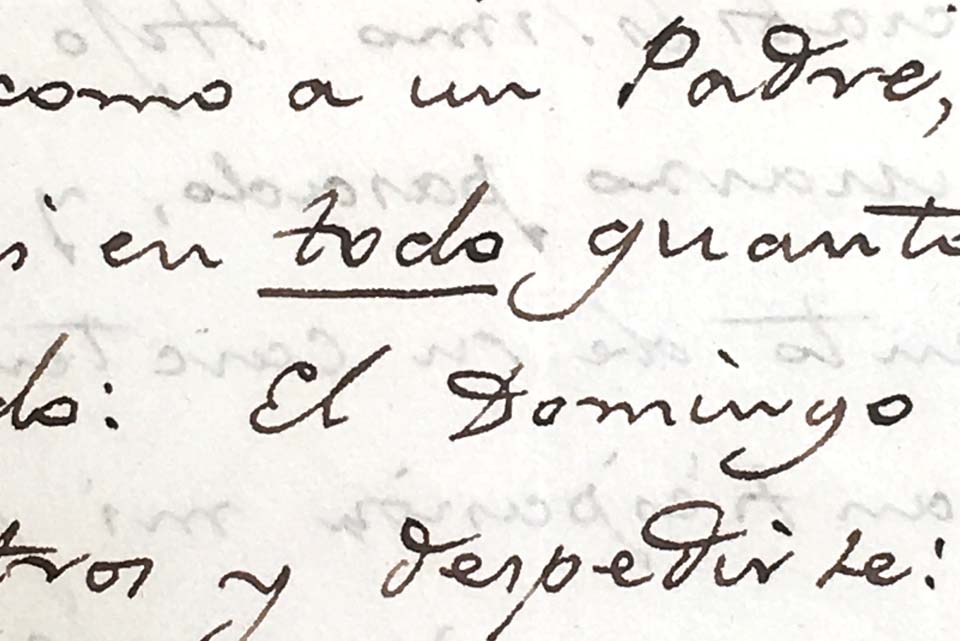 como a un Padre,
i en todo quanto
do: El Domingo
tros y despedirse: